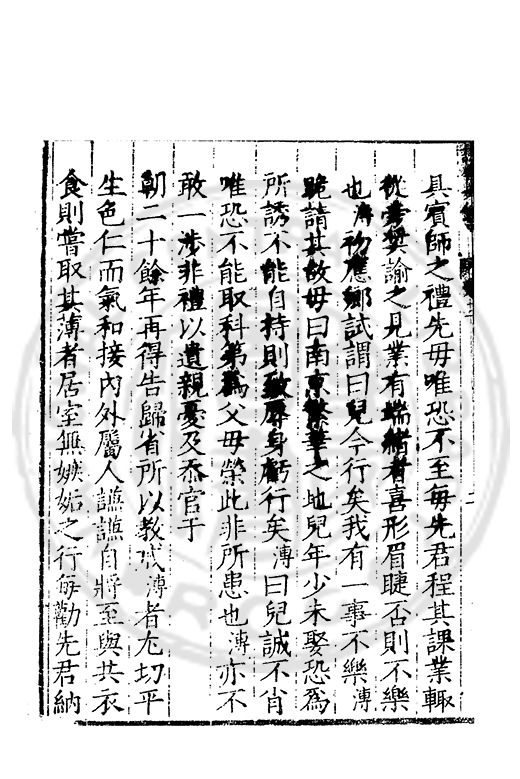 具賓師之禮先母唯恐不至每先君程其課業輙
從旁奨諭之見業有端緒者喜形眉睫否則不樂
也溥初應鄉試謂曰兒今行矣我有一事不樂溥
跪請其故母曰南京繁華之地兒年少未娶恐為
所誘不能自持則致辱身虧行矣溥曰兒誠不肖
唯恐不能取科第為父母榮此非所患也溥亦不
敢一渉非禮以遺親憂及忝官于
朝二十餘年再得告歸省所以教戒溥者尤切平
生色仁而氣和接内外屬人謙謙自將至與共衣
食則嘗取其薄者居室無嫉妬之行每勸先君納